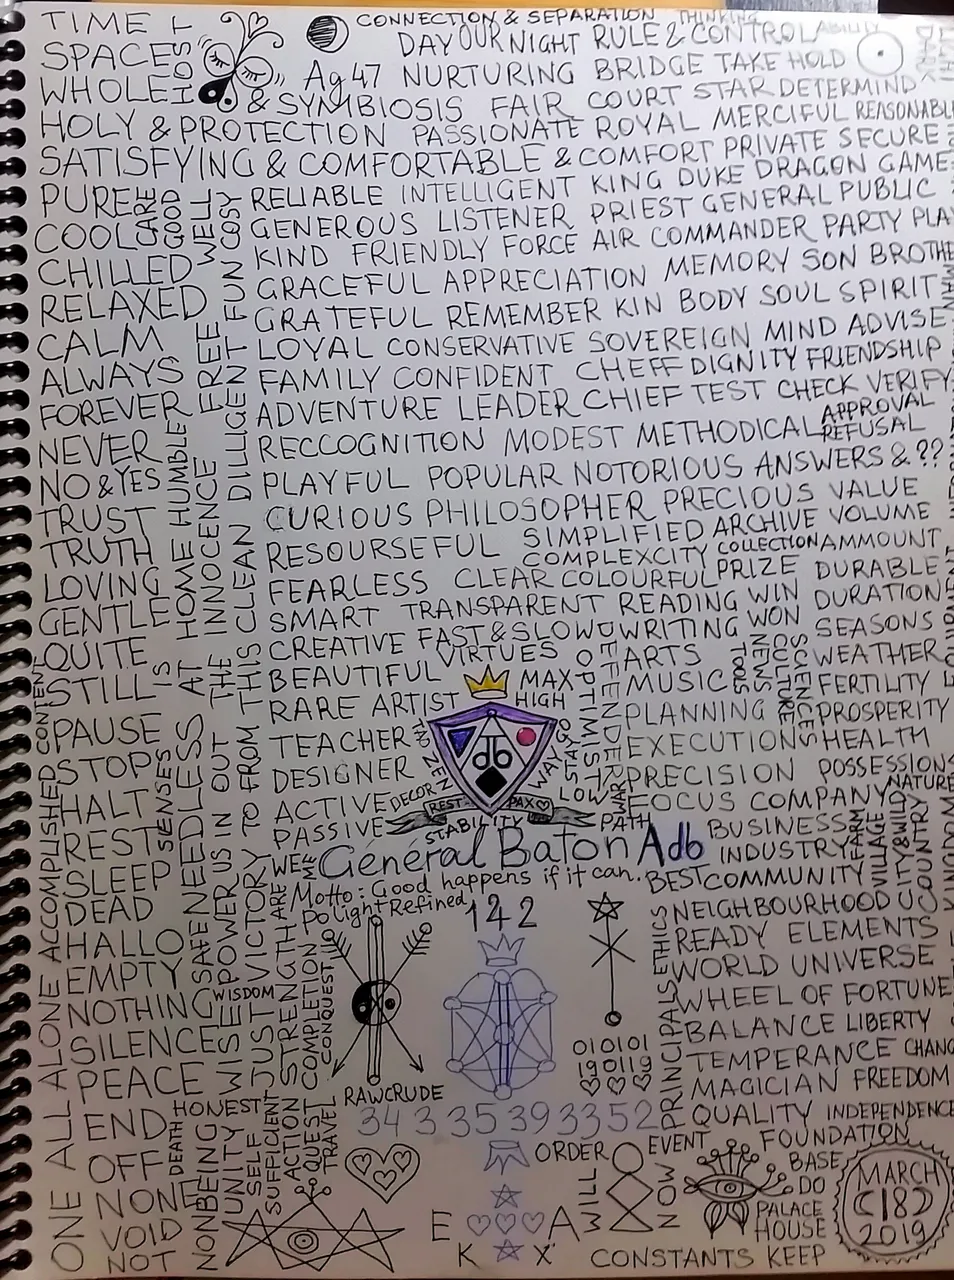 TIME
SPACE
WHOLE
HOST
CONNECTION & SEPARATION THINKING
DAY OUR NIGHT RULE & CONTROL ABILITY
Ag 47 NURTURING BRIDGE TAKE HOLD
& SYMBIOSIS FAIR COURT STAR DETERMIND
DARK
HOLY & PROTECTION PASSIONATE ROYAL MERCIFUL REASONABLE
SATISFYING & COMFORTABLE & COMFORT PRIVATE SECURE
PURE RELIABLE INTELLIGENT KING DUKE DRAGON GAME
COOL GENEROUS LISTENER PRIEST GENERAL PUBLIC
CARE
GOOD
WELL
COSY
CHILLED KIND FRIENDLY FORCE AIR COMMANDER PARTY PLAY
RELAXED GRACEFUL APPRECIATION MEMORY SON BROTHE
CALM GRATEFUL REMEMBER KIN BODY SOUL SPIRIT
ALWAYS LOYAL CONSERVATIVE SOVEREIGN MIND ADVISE
FOREVER FAMILY CONFIDENT CHEFF DIGNITY FRIENDSHIP
NEVER ADVENTURE LEADER CHIEF TEST CHECK VERIFY
NO & YES RECCOGNITION MODEST METHODICAL APPROVAL
REFUSAL
TRUST PLAYFUL POPULAR NOTORIOUS ANSWERS & ??
TRUTH CURIOUS PHILOSOPHER PRECIOUS VALUE
LOVING RESOURSEFUL SIMPLIFIED ARCHIVE VOLUME
COMPLEXCITY COLLECTION AMMOUNT
GENTLE FEARLESS CLEAR COLOURFUL PRIZE DURABLE
QUITE SMART TRANSPARENT READING WIN DURATION
STILL CREATIVE FAST & SLOW WRITING WON SEASONS
VIRTUES
PAUSE BEAUTIFUL MAX ARTS WEATHER
STOP RARE ARTIST HIGH MUSIC FERTILITY
HALT TEACHER PLANNING PROSPERITY
REST DESIGNER EXECUTIONS HEALTH
SLEEP ACTIVE DECOR LOW PRECISION POSSESSIONS
DEAD PASSIVE FOCUS COMPANY NATURE
FREE
FUN
DILLIGENT
HUMBLE
INNOCENCE
CLEAN
TIME IS
HOME AT
THE
THIS
FROM
TO
OUT
IN
US
POWER
VICTORY
SENSES
NEEDLESS
SAFE
CONTENT
ACCOMPLISHED
ALONE
ALL
ONE
OPTIMIST
DEFENDER
TOOLS
NEWS
CULTURE
SCIENCES
db
REST PAX
STABILITY
WAR
PATH
General Baton Adb
BUSINESS
INDUSTRY
FARM
VILLAGE
CITY & WILD
COUNTRY
WE ARE
ME
Motto: Good happens if it can. BEST COMMUNITY
Polight Refined 142
HALLO
EMPTY
NOTHING
WISDOM
SILENCE
PEACE
END
OFF
NONE
VOID
NOT
HONEST
DEATH
NONBEING
UNITY
WISE
SELF
JUST
SUFFICIENT
STRENGTH
ACTION
COMPLETION
QUEST
CONQUEST
TRAVEL
ETHICS
PRINCIPALS
NEIGHBOURHOOD
READY ELEMENTS
WORLD UNIVERSE
WHEEL OF FORTUNE
BALANCE LIBERTY
TEMPERANCE CHANG
MAGICIAN FREEDOM
QUALITY INDEPENDENCE
010101
190119
RAWCRUDE
34 3 35 39 33 52
ORDER EVENT FOUNDATION
BASE
DO
PALACE
HOUSE
WILL
NOW
E A
K X
CONSTANTS KEEP
MARCH
2019